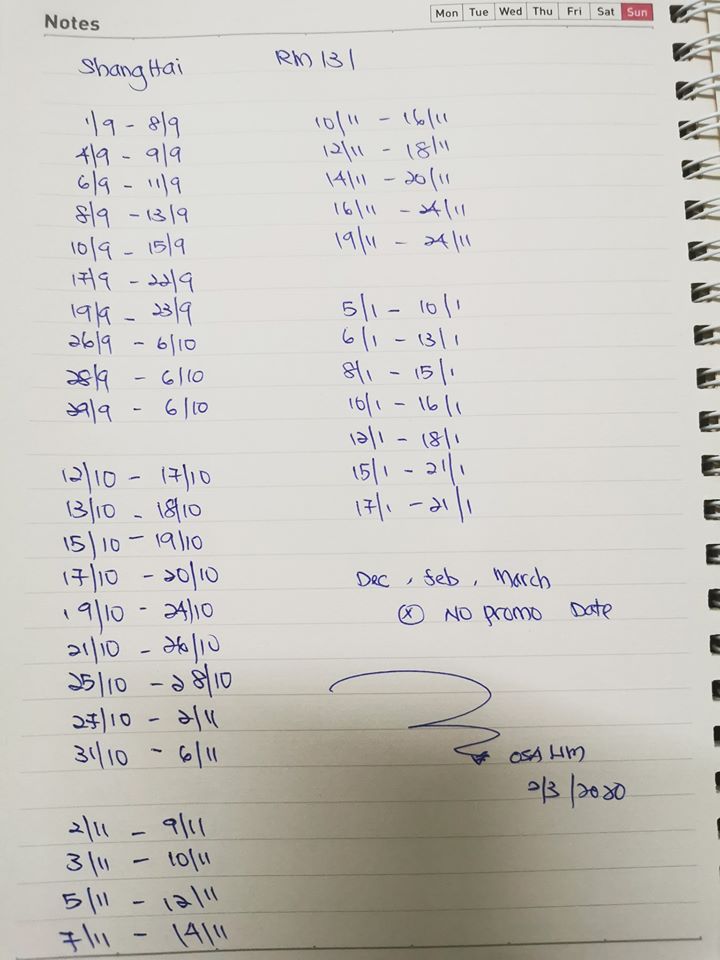 Notes
Mon Tue Wed Thu Fri Sat Sun
ShangHai RM 131
1/9 - 8/9
4/9 - 9/9
6/9 - 11/9
8/9 - 13/9
10/9 - 15/9
17/9 - 22/9
19/9 - 23/9
26/9 - 6/10
28/9 - 6/10
29/9 - 6/10
12/10 - 17/10
13/10 - 18/10
15/10 - 19/10
17/10 - 20/10
19/10 - 24/10
21/10 - 26/10
25/10 - 28/10
27/10 - 2/11
31/10 - 6/11
2/11 - 9/11
3/11 - 10/11
5/11 - 12/11
7/11 - 14/11
10/11 - 16/11
12/11 - 18/11
14/11 - 20/11
16/11 - 24/11
19/11 - 24/11
5/1 - 10/1
6/1 - 13/1
8/1 - 15/1
10/1 - 16/1
12/1 - 18/1
15/1 - 21/1
17/1 - 21/1
Dec, feb, march
ⓧ NO promo Date
2/3/2020